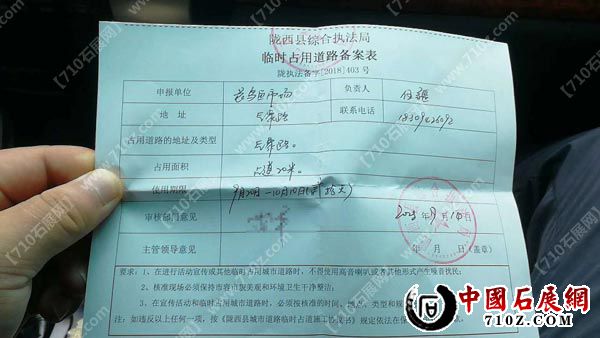 陇西县综合执法局
临时占用道路备案表
陇执法备字[2018]403 号
申报单位 花鸟鱼市场 负责人 任
地 址 长寿路 联系电话
占用道路的地址及类型 长寿路。
占用面积 占道20米。
使用期限 9月20日—10月10日(贰拾天)
审核部门意见 年9月10日
主管领导意见 年 月 日(盖章)
要求:1、在进行活动宣传或其他临时占用城市道路时,不得使用高音喇叭或者其他形式产生噪音扰民;
2、核准现场必须保持市容市貌美观和环境卫生干净整洁;
3、在宣传活动和临时占用城市道路时,必须按核准的时间、地点、类型和规
注:如违反以上任何一项,按《陇西县城市道路临时占道施工协议书》规定依法在保
中國石展網
710Z.COM
【710石展网】